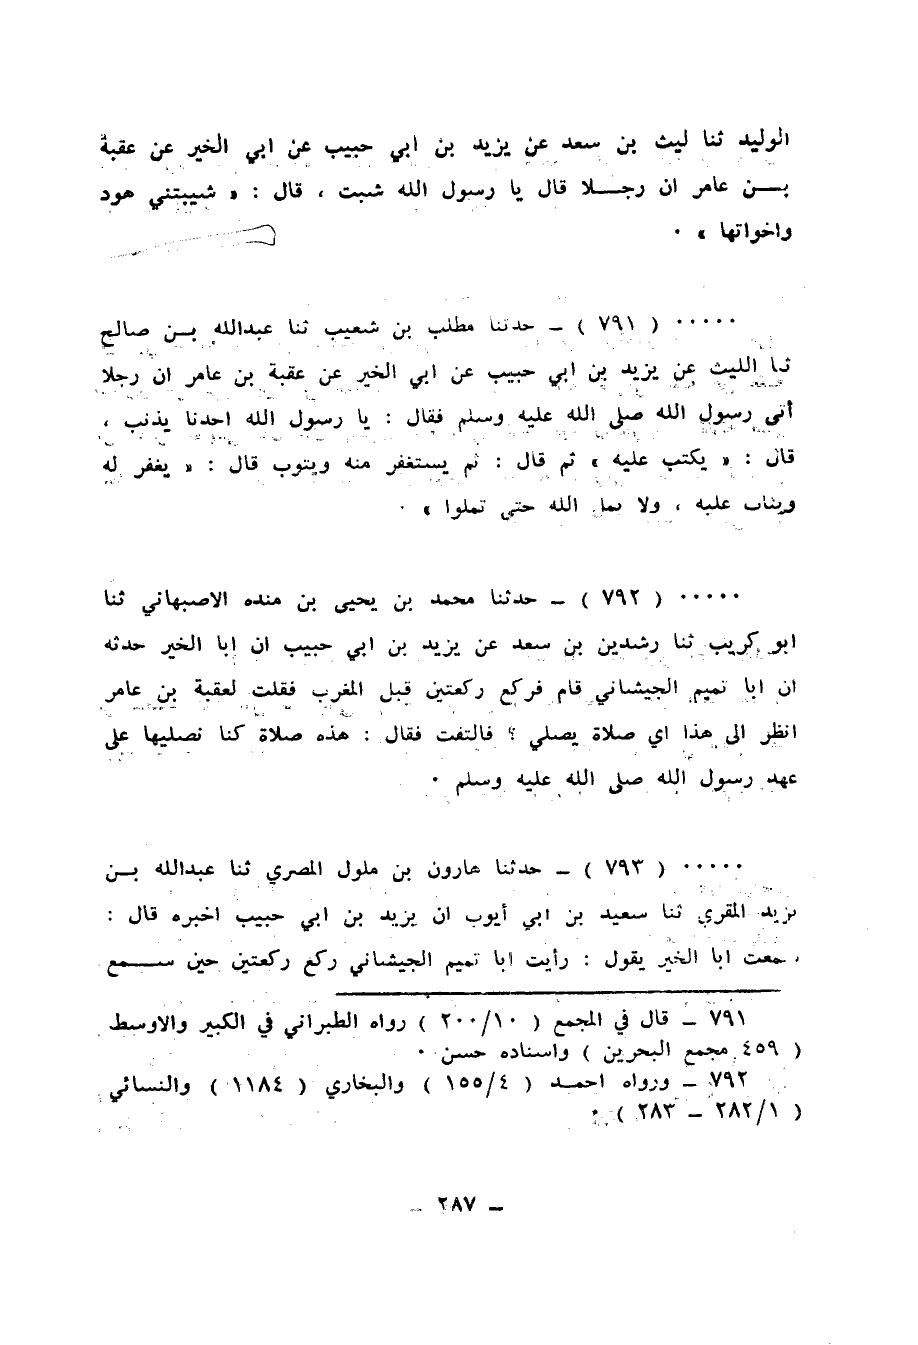 الوليد ثنا ليث بن سعد عن يزيد بن ابي حبيب عن ابي الخير عن عقبة
بـــن عامر ان رجــــلا قال يا رسول الله شبت ، قال : « شيبتني هود
واخواتها » ٠
٠٠٠٠٠ ( ٧٩١ ) ــ حدثنا مطلب بن شعيب ثنا عبدالله بــن صالح
ثنا الليث عن يزيد بن ابي حبيب عن ابي الخير عن عقبة بن عامر ان رجلا
أتى رسول الله صلى الله عليه وسلم فقال : يا رسول الله احدنا يذنب ،
قال : « يكتب عليه » ثم قال : ثم يستغفر منه ويتوب قال : « يغفر له
ويتاب عليه ، ولا يمل الله حتى تملوا » ٠
٠٠٠٠٠ ( ٧٩٢ ) ــ حدثنا محمد بن يحيى بن منده الاصبهاني ثنا
ابو كريب ثنا رشدين بن سعد عن يزيد بن ابي حبيب ان ابا الخير حدثه
ان ابا تميم الجيشاني قام فركع ركعتين قبل المغرب فقلت لعقبة بن عامر
انظر الى هذا اي صلاة يصلي ؟ فالتفت فقال : هذه صلاة كنا نصليها على
عهد رسول الله صلى الله عليه وسلم ٠
٠٠٠٠٠ ( ٧٩٣ ) ــ حدثنا هارون بن ملول المصري ثنا عبدالله بــن
يزيد المقري ثنا سعيد بن ابي أيوب ان يزيد بن ابي حبيب اخبره قال :
سمعت ابا الخير يقول : رأيت ابا تميم الجيشاني ركع ركعتين حين ســـمع
٧٩١ ــ قال في المجمع ( ٢٠٠/١٠ ) رواه الطبراني في الكبير والاوسط
( ٤٥٩ مجمع البحرين ) واسناده حسن ٠
٧٩٢ ــ ورواه احمـد ( ١٥٥/٤ ) والبخاري ( ١١٨٤ ) والنسائي
( ٢٨٢/١ ــ ٢٨٣ ) ٠
ــ ٢٨٧ ــ